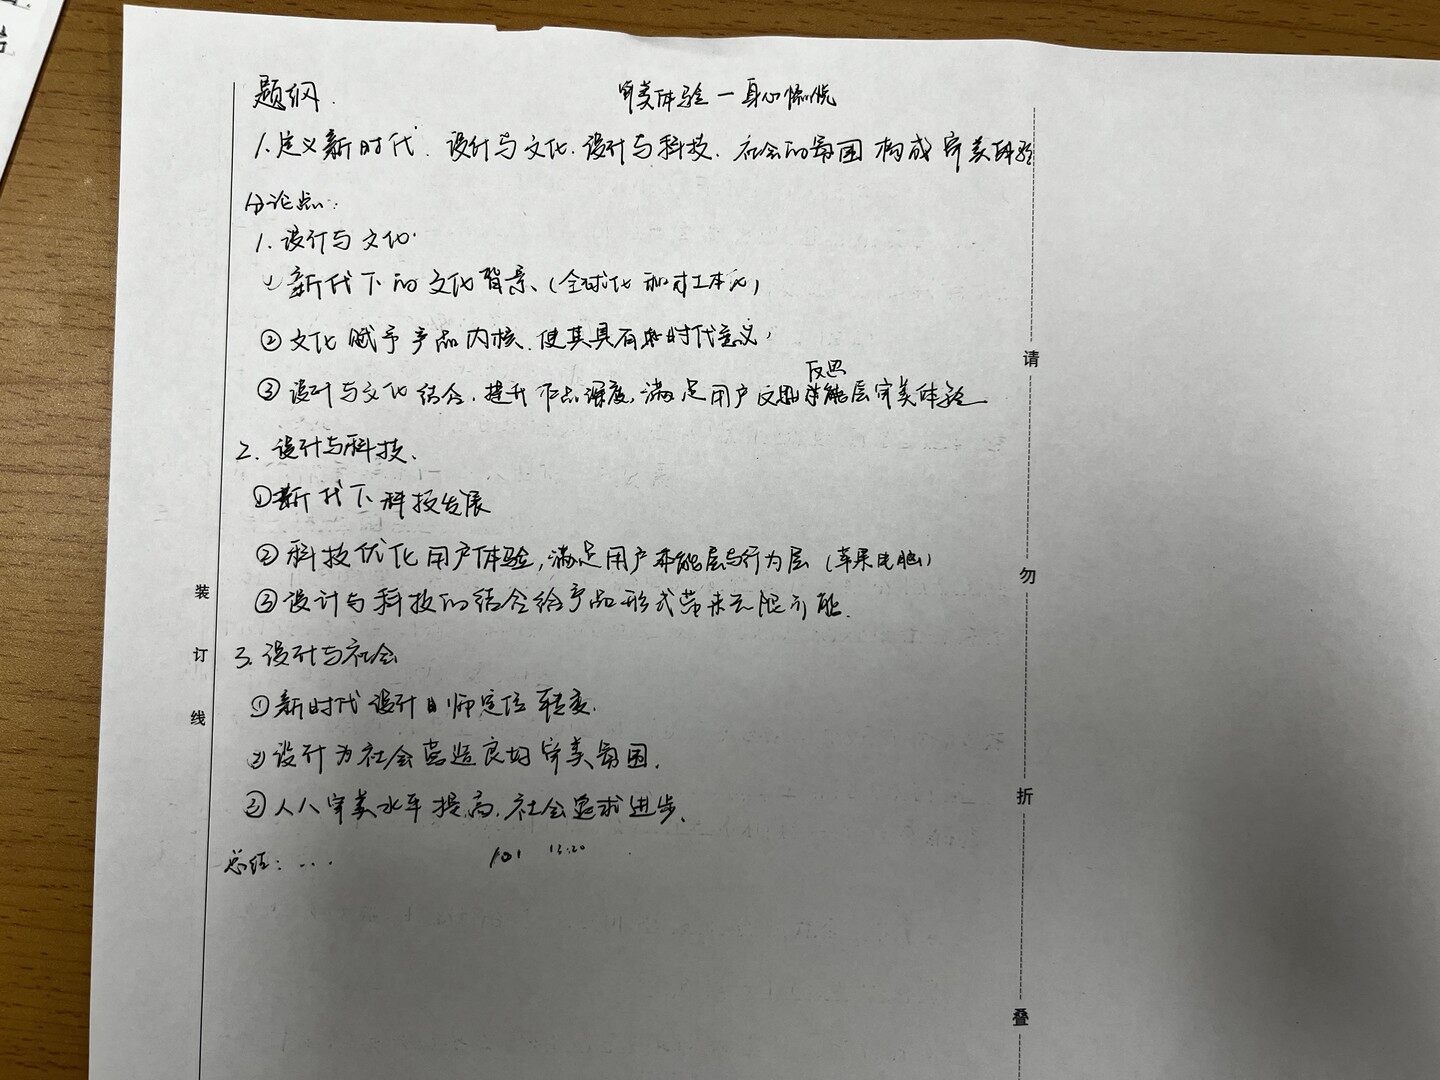 题纲.
审美体验—身心愉悦
1.定义新时代.设计与文化.设计与科技.社会的氛围构成审美体验
分论点:
1.设计与文化.
①新代下的文化背景、(全球化和本土化)
②文化赋予产品内核.使其具有时代意义,
反思
③设计与文化结合.提升作品深度,满足用户能层审美体验
2.设计与科技.
①新代下科技发展
②科技优化用户体验,满足用户本能层与行为层(苹果电脑)
③设计与科技的结合给产品形式带来无限可能.
3.设计与社会
①新时代设计师定位转变.
②设计为社会营造良好审美氛围.
③人人审美水平提高.社会追求进步.
总结:...
13:20
装订线
请勿折叠